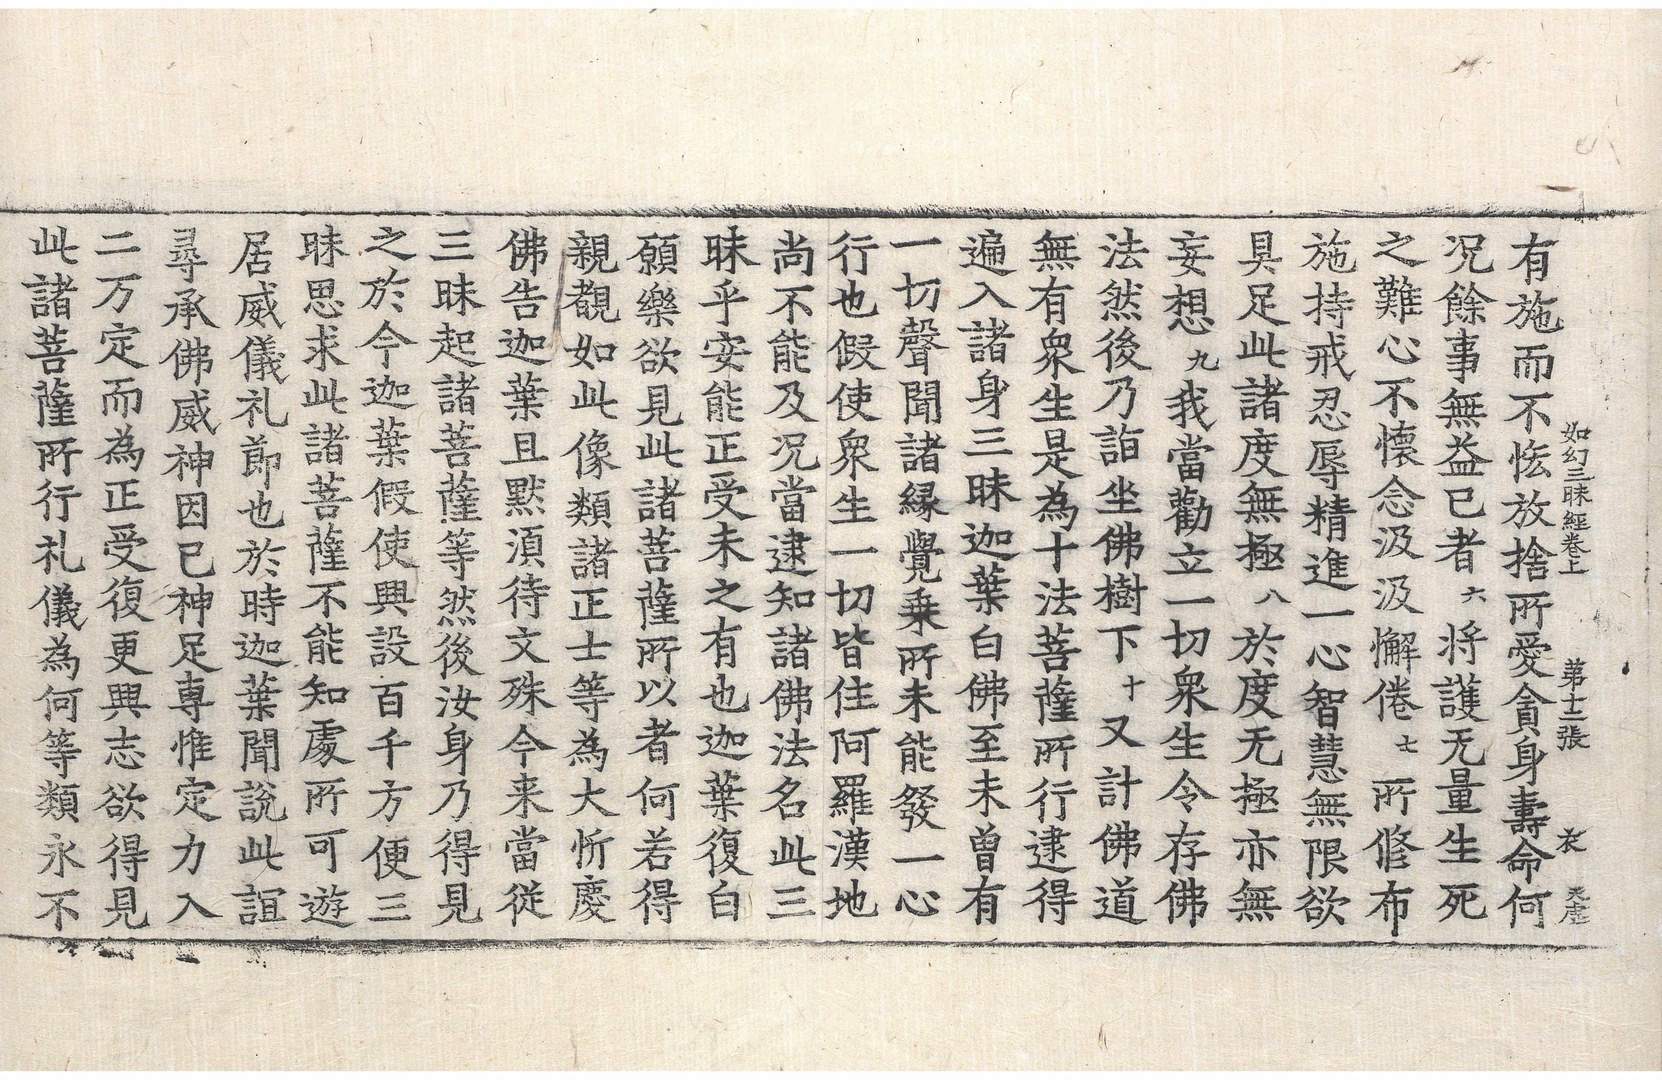 如幻三昧經卷上 第十二張 衣 天虛
有施而不悋放捨所愛貪身壽命何
况餘事無益已者六將護无量生死
之難心不懷念汲汲懈倦七所修布
施持戒忍辱精進一心智慧無限欲
具足此諸度無極八於度无極亦無
妄想九我當勸立一切衆生令存佛
法然後乃詣坐佛樹下十又計佛道
無有衆生是為十法菩薩所行逮得
遍入諸身三昧迦葉白佛至未曾有
一切聲聞諸緣覺乗所未能發一心
行也假使衆生一切皆住阿羅漢地
尚不能及况當逮知諸佛法名此三
昧乎安能正受未之有也迦葉復白
願樂欲見此諸菩薩所以者何若得
親覩如此像類諸正士等為大忻慶
佛告迦葉且默湏待文殊今来當從
三昧起諸菩薩等然後汝身乃得見
之於今迦葉假使興設百千方便三
昧思求此諸菩薩不能知處所可遊
居威儀礼節也於時迦葉聞說此誼
尋承佛威神因已神足専惟定力入
二万定而為正受復更興志欲得見
此諸菩薩所行礼儀為何等類永不